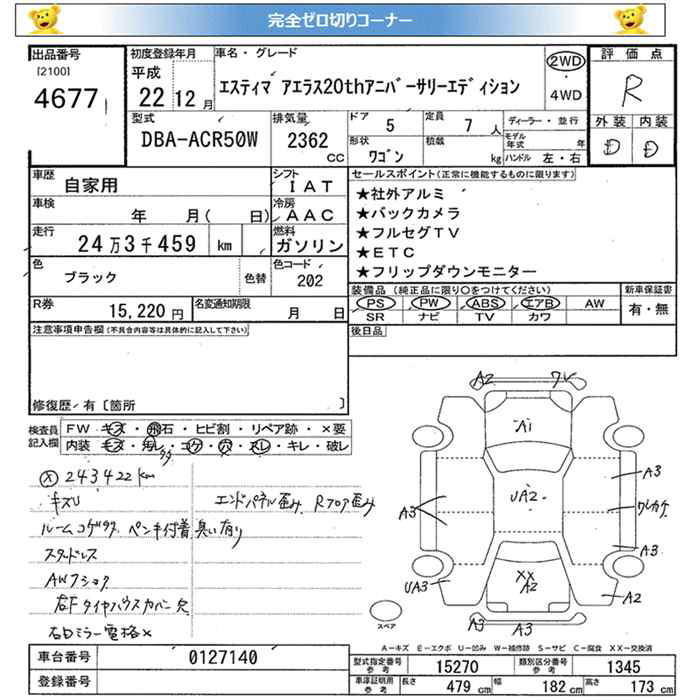 完全ゼロ切りコーナー
出品番号
[2100]
4677
初度登録年月
平成
22 12月
車名・グレード
エスティマ アエラス20thアニバーサリーエディション
2WD
・
4WD
評価点
R
外装 内装
D D
型式
DBA-ACR50W
排気量
2362
CC
ドア 5
定員 7 人
形状
ワゴン
積載
kg
ディーラー・並行
モデル年式 年
ハンドル 左・右
車歴
自家用
シフト
IAT
車検
年 月( 日)
冷房
AAC
走行
24万3千459 km
燃料
ガソリン
色
ブラック
色替
色コード
202
R券
15,220円
名変通知期限
月 日
注意事項申告欄(不具合内容等は具体的に記入して下さい)
修復歴/有[箇所 ]
セールスポイント(正常に機能するものに限ります)
★社外アルミ
★バックカメラ
★フルセグTV
★ETC
★フリップダウンモニター
装備品(純正品に限り○をつけてください)
PS PW ABS エアB AW
SR ナビ TV カワ
新車保証書
有・無
後日品
検査員記入欄
FW キズ・飛石・ヒビ割・リペア跡・×要
内装 キズ・汚レ・コゲ・穴・スレ・キレ・破レ
243422km
キズU
エンドパネル歪み Rフロア歪み
ルームコゲ ペンキ付着 臭い有り
スタッドレス
AWフショク
右Fタイヤハウスカバー欠
右ロミラー電格×
A2
A1
UA2
A3
A3
ワレカケ
A3
UA3
XX
A2
A2
A3
A3
スペア
A-キズ E-エクボ U-凹み W-補修跡 S-サビ C-腐食 XX-交換済
車台番号
0127140
登録番号
型式指定番号
参考
15270
類別区分番号
参考
1345
車庫証明用
参考
長さ 479 cm
幅 182 cm
高さ 173 cm